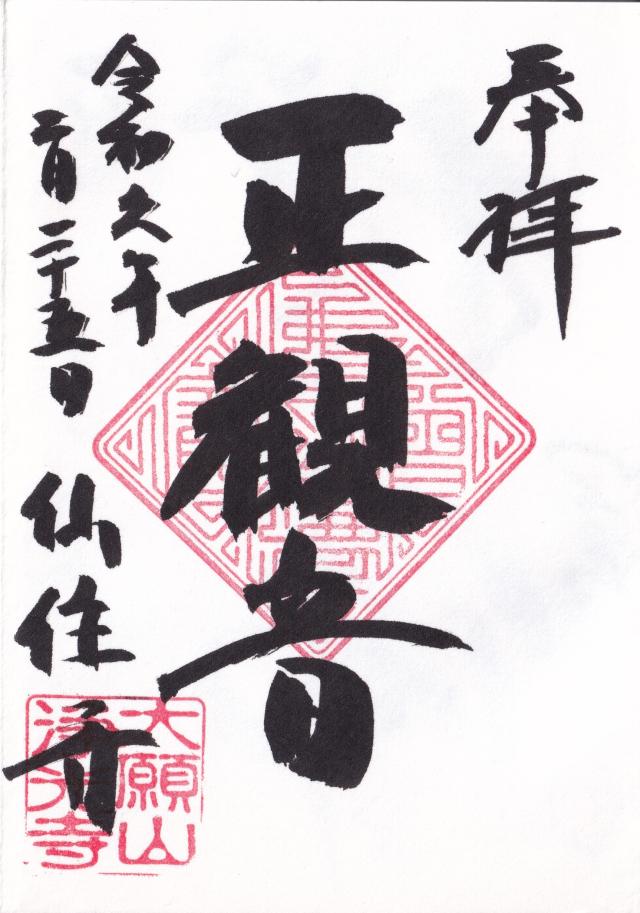 奉拝
正観音
令和六年
二月二十五日
仙住寺
大願山
浄光寺